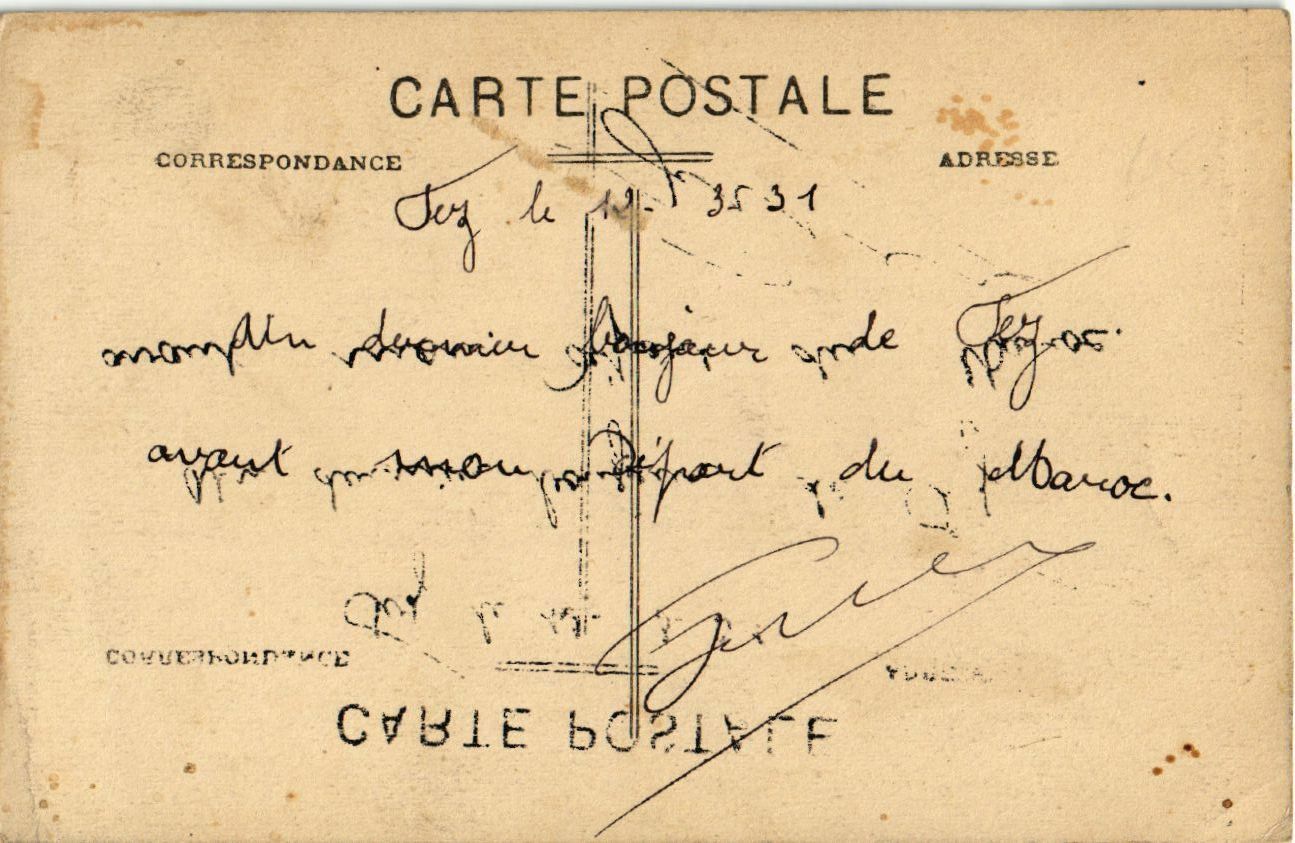 CARTE POSTALE
CORRESPONDANCE ADRESSE
Fez le 12- 3 31
Un dernier bonjour de Fez
avant mon Départ du Maroc.
CORRESPONDANCE
CARTE POSTALE